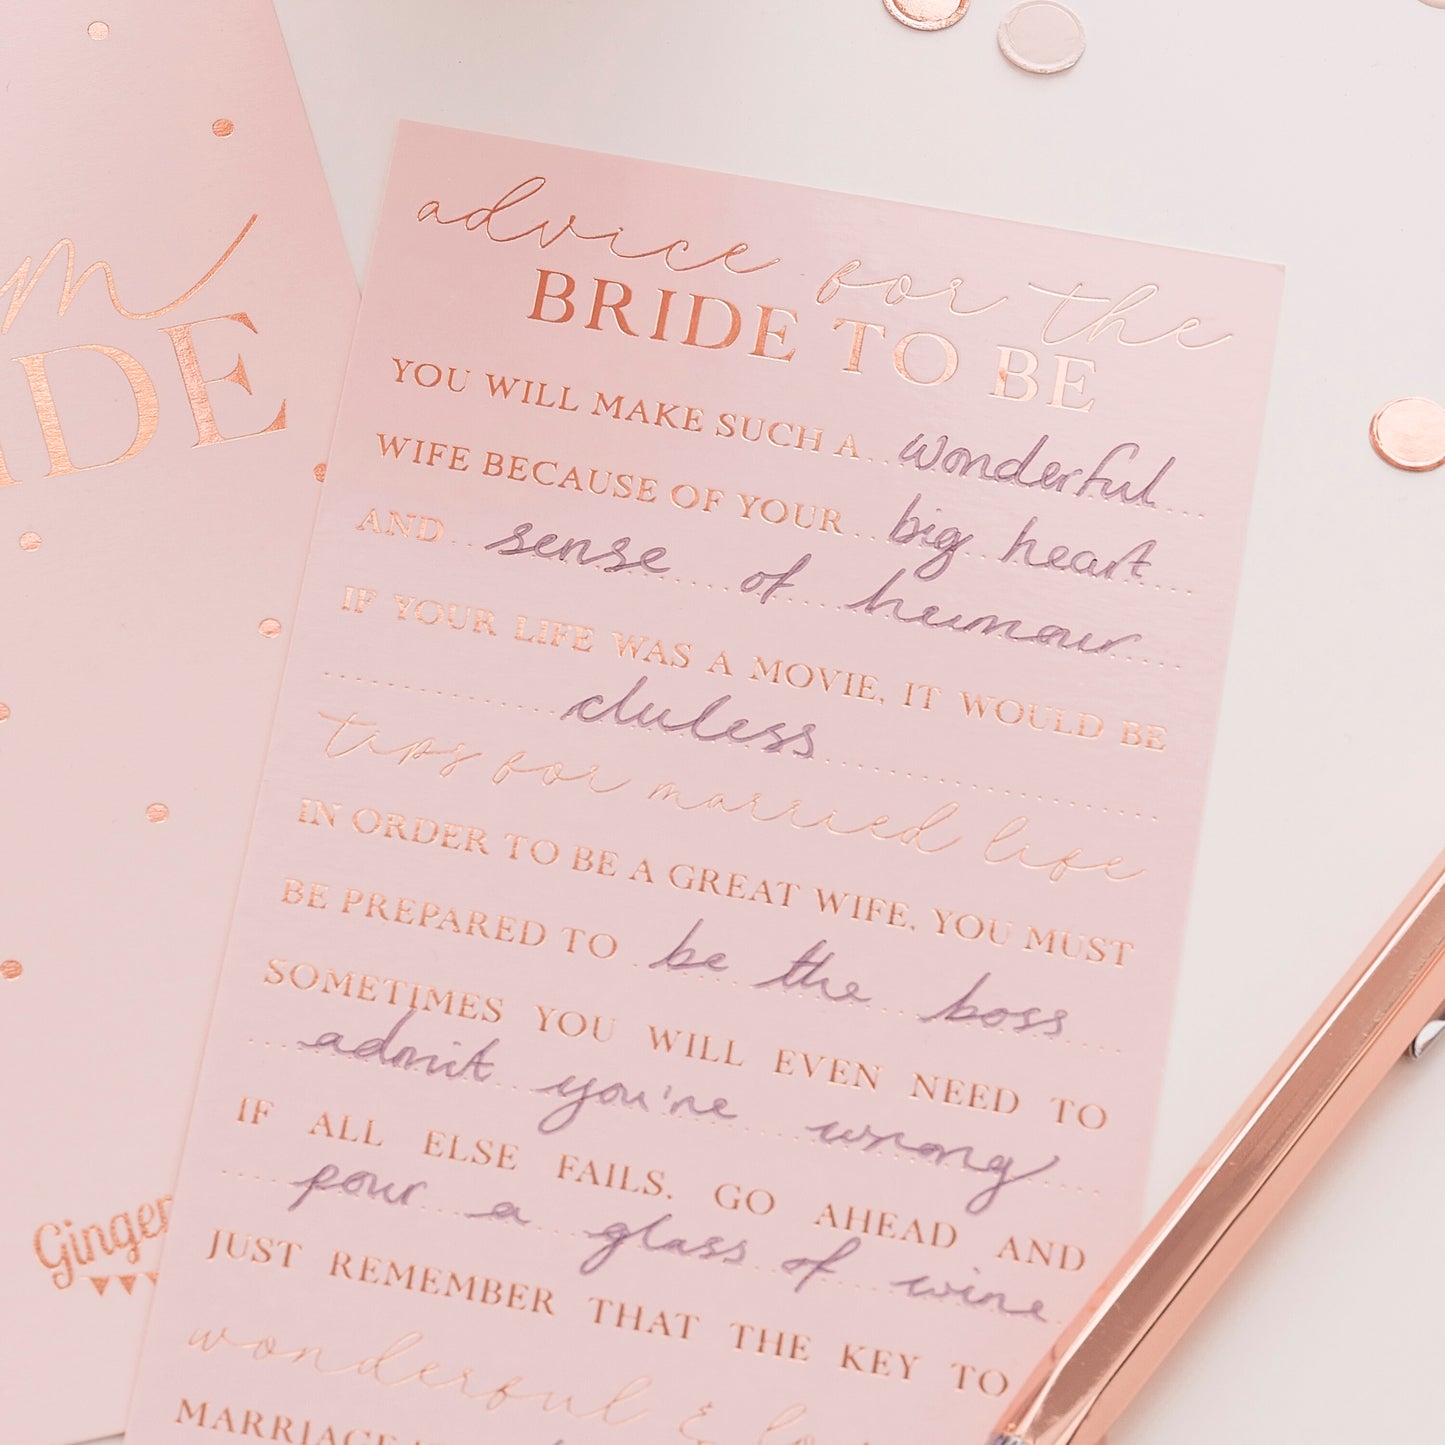 advice for the
BRIDE TO BE
YOU WILL MAKE SUCH A wonderful
WIFE BECAUSE OF YOUR big heart
AND sense of humour
IF YOUR LIFE WAS A MOVIE, IT WOULD BE
clueless
tips for married life
IN ORDER TO BE A GREAT WIFE, YOU MUST
BE PREPARED TO be the boss
SOMETIMES YOU WILL EVEN NEED TO
admit you're wrong
IF ALL ELSE FAILS, GO AHEAD AND
pour a glass of wine
JUST REMEMBER THAT THE KEY TO
wonderful &
MARRIAGE
Ginger